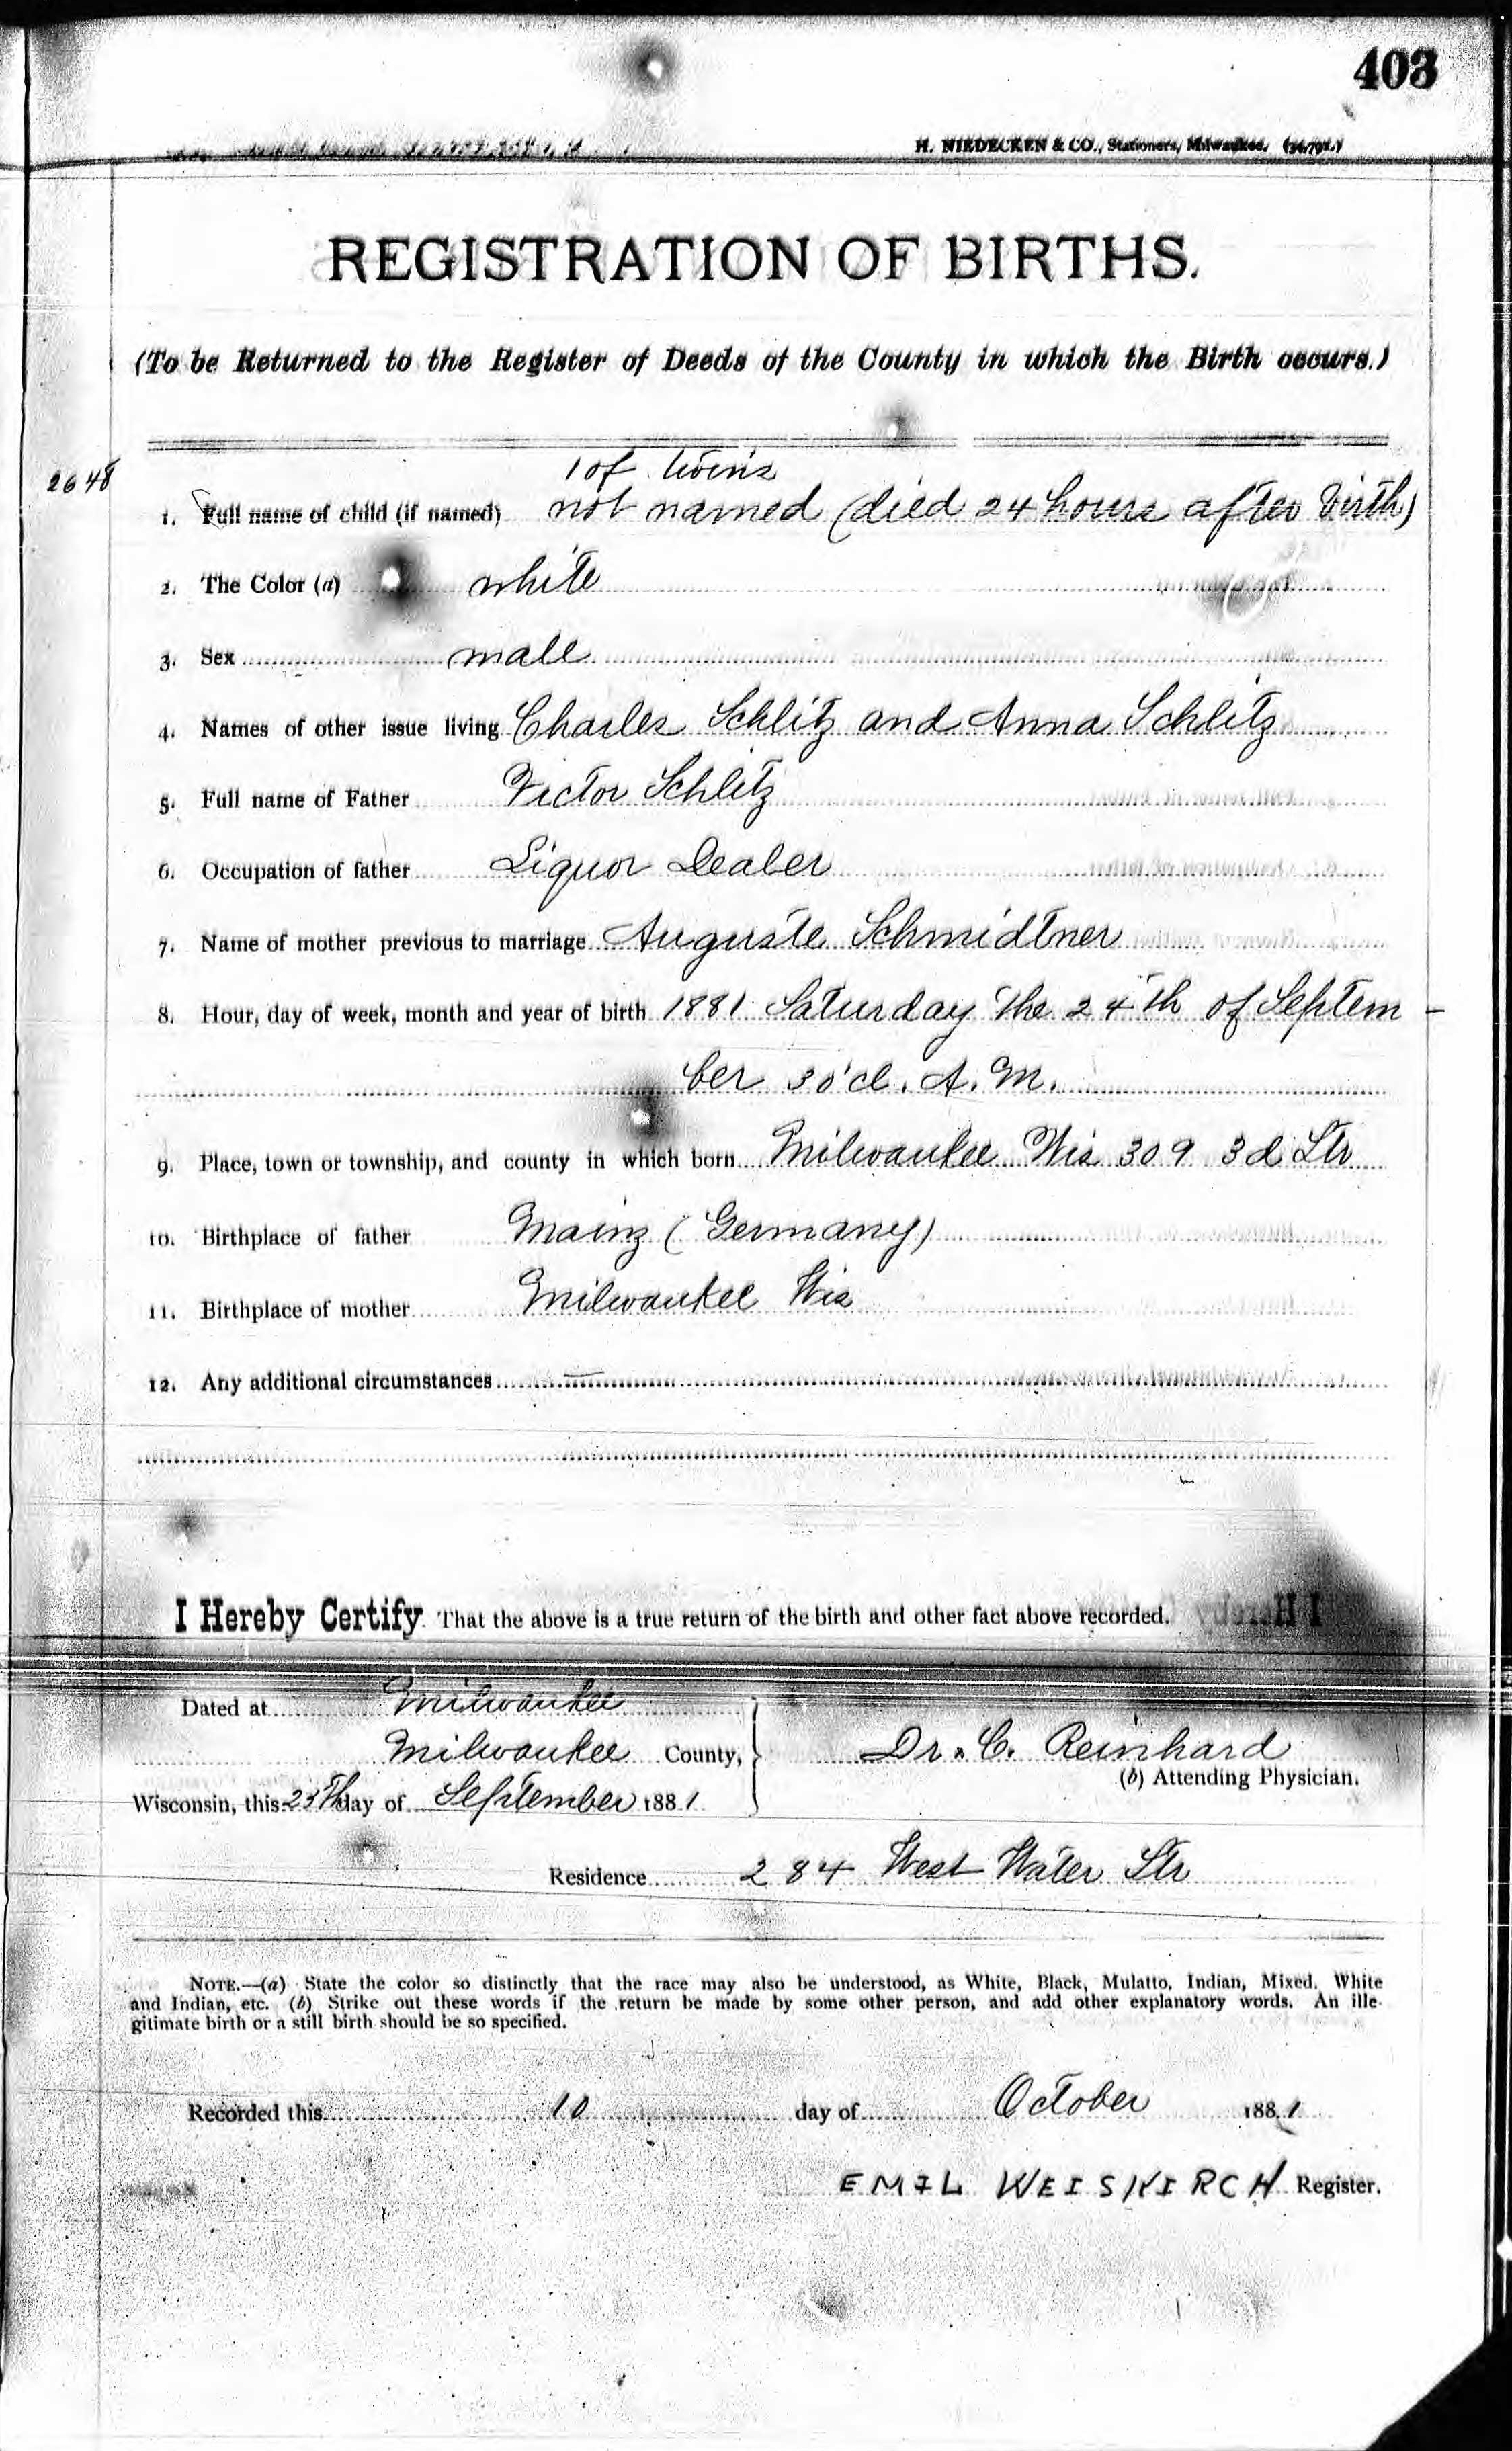 403
H. NIEDECKEN & CO., Stationers, Milwaukee.
REGISTRATION OF BIRTHS.
(To be Returned to the Register of Deeds of the County in which the Birth occurs.)
1 of twins
2648
1. Full name of child (if named) not named (died 24 hours after birth)
2. The Color (a) white
3. Sex male
4. Names of other issue living Charles Schlitz and Anna Schlitz
5. Full name of Father Victor Schlitz
6. Occupation of father Liquor Dealer
7. Name of mother previous to marriage Auguste Schmidtner
8. Hour, day of week, month and year of birth 1881 Saturday the 24th of Septem-
ber 3 o'cl. A.M.
9. Place, town or township, and county in which born Milwaukee Wis 309 3d Str
10. Birthplace of father Mainz (Germany)
11. Birthplace of mother Milwaukee Wis
12. Any additional circumstances
I Hereby Certify That the above is a true return of the birth and other fact above recorded.
Dated at Milwaukee
Milwaukee County,
Dr. C. Reinhard
(b) Attending Physician.
Wisconsin, this 25th day of September 1881
Residence 284 West Water Str
NOTE.—(a) State the color so distinctly that the race may also be understood, as White, Black, Mulatto, Indian, Mixed, White
and Indian, etc. (b) Strike out these words if the return be made by some other person, and add other explanatory words. An ille-
gitimate birth or a still birth should be so specified.
Recorded this 10 day of October 1881
EMIL WEISKIRCH Register.